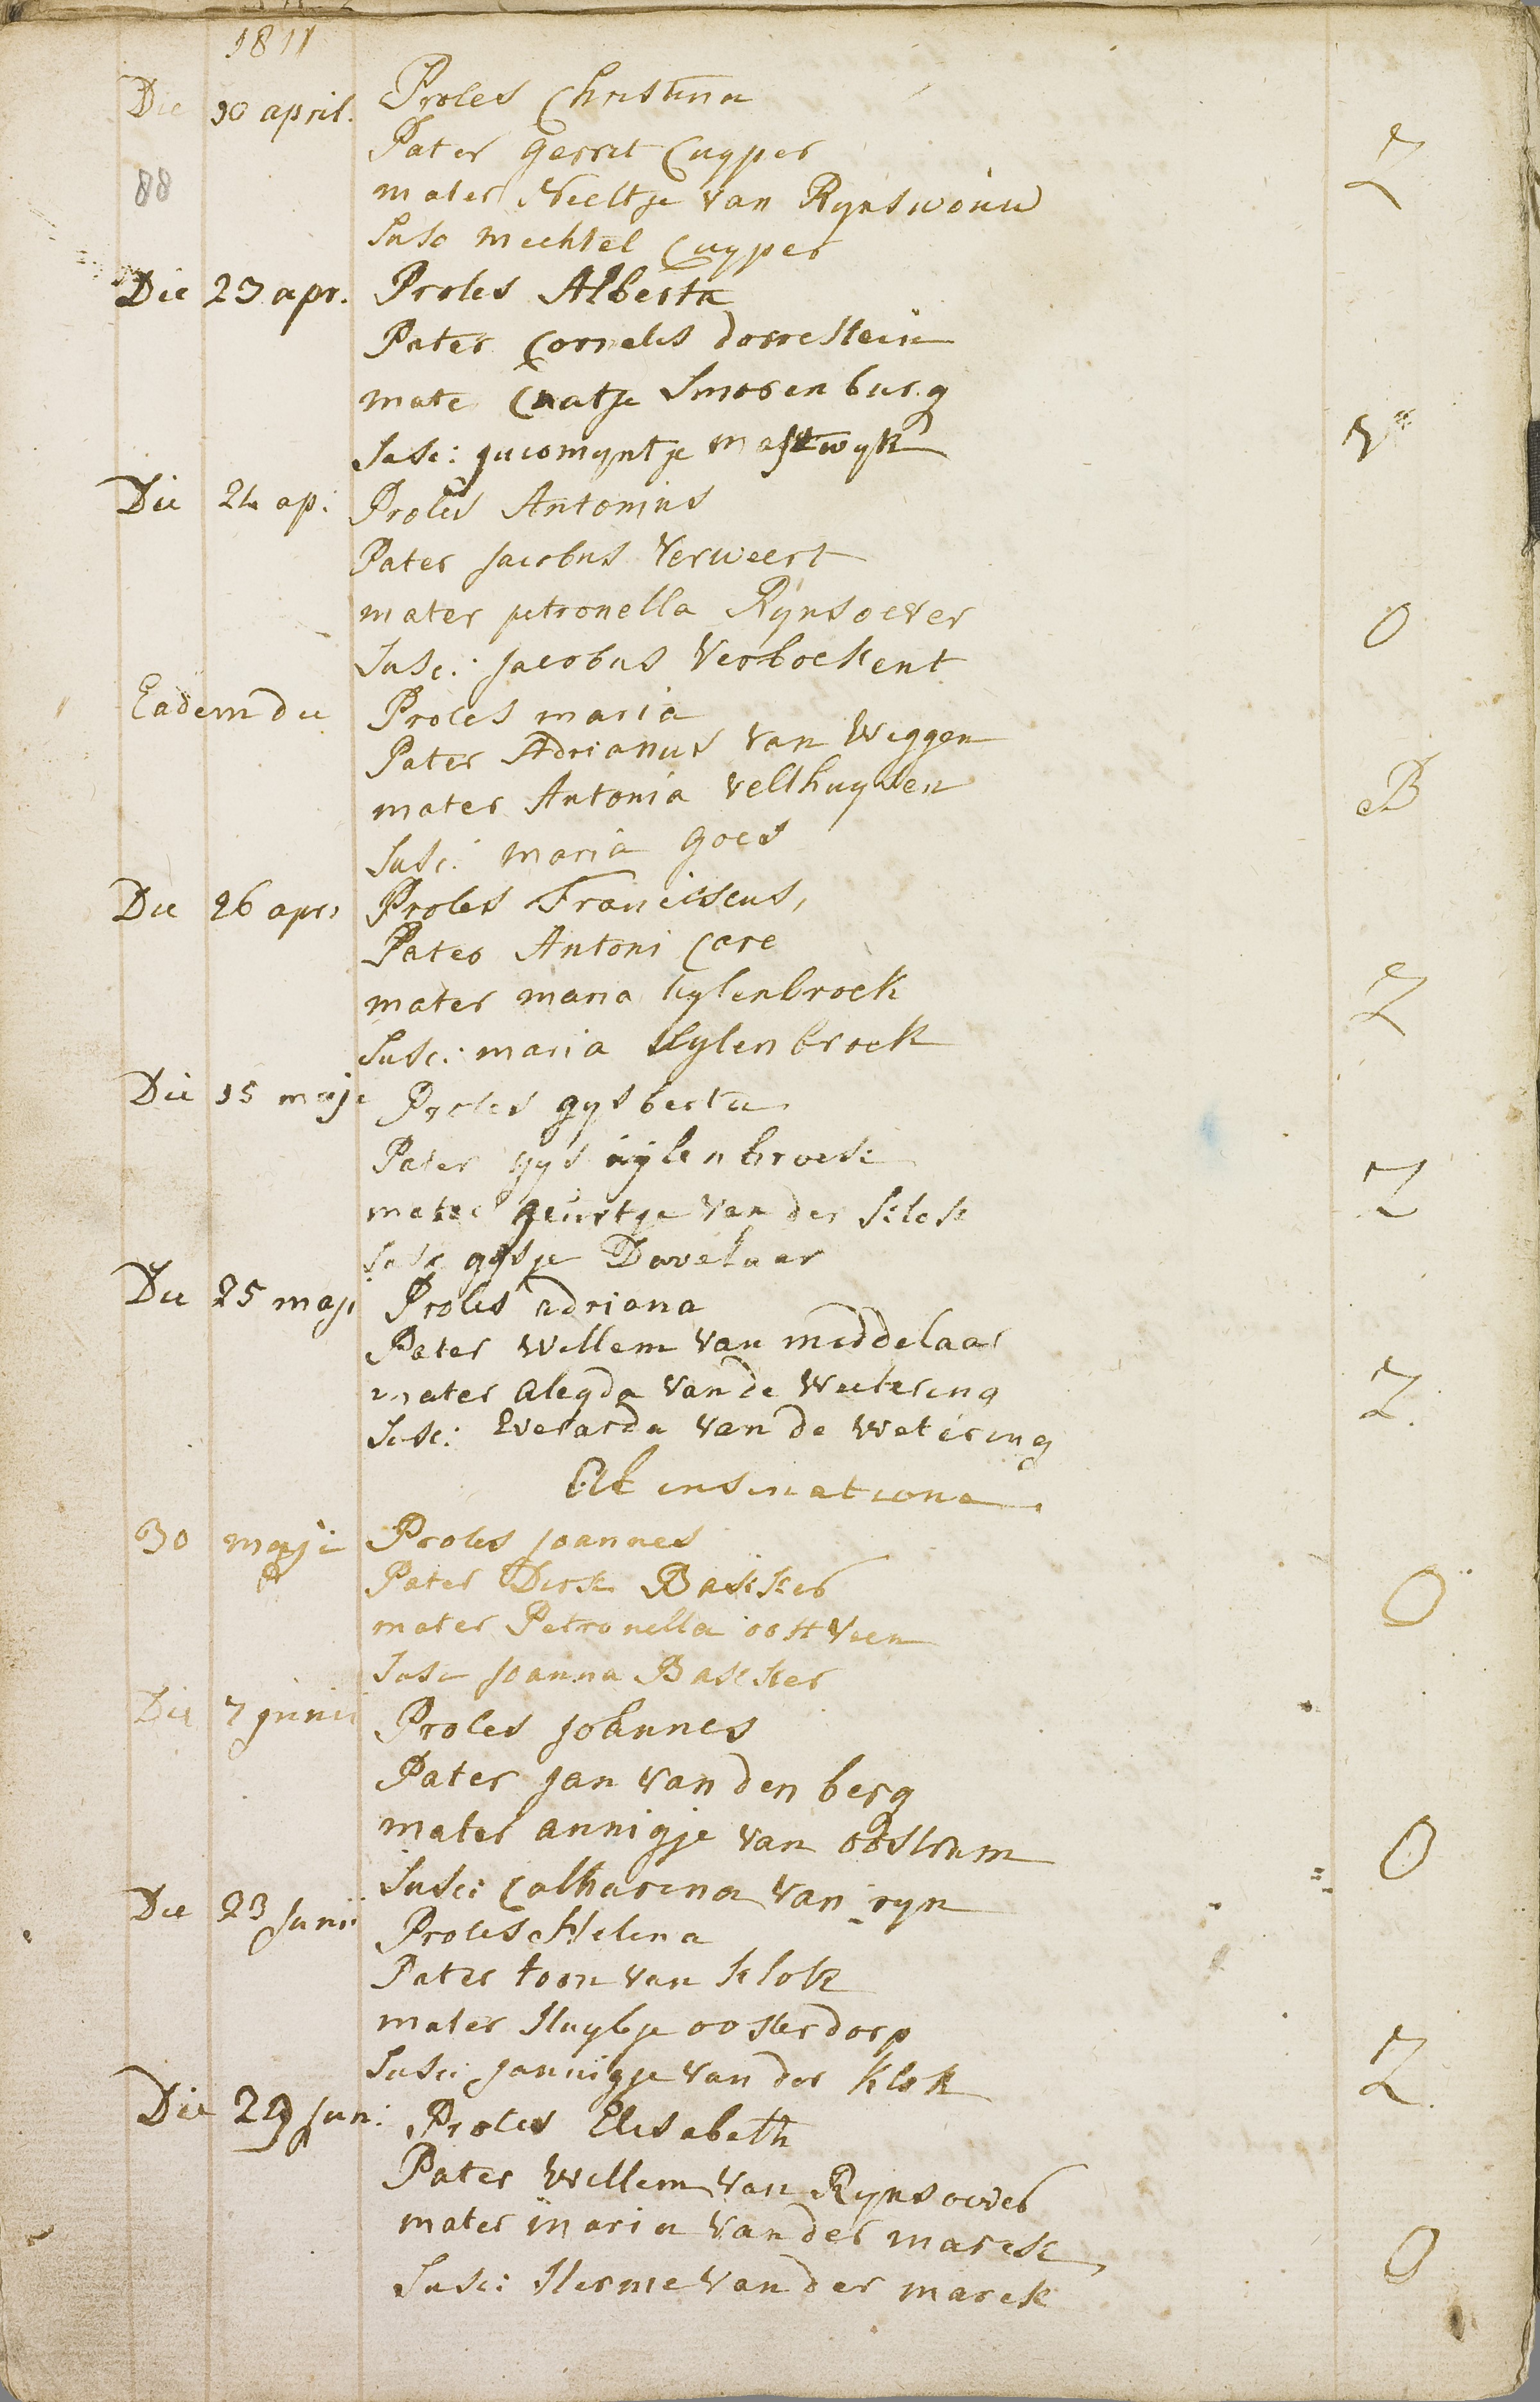 1811
Die 10 april. Proles Christina
Pater gerrit Cuyper
88
mater Neeltje van Rynswouw
Z
Susc mechtel Cuyper
Die 23 apr. Proles Alberta
Pater Cornelis dorrestein
mate Caatje Smorenburg
Susc: jucomyntje mastwyk
V
Die 24 ap: Proles Antonius
Pater jacobus Verweert
mater petronella Rynsoever
O
Susc: jacobus Verbockent
Eadem die Proles maria
Pater Adrianus van Wiggen
mater Antonia velthuysen
B
Susc: maria goes
Die 26 apr: Proles Franciscus,
Pater Antoni Care
mater maria uylenbroek
Z
Susc: maria Uylenbroek
Die 15 maji Proles gysberta
Pater gys uylenbroek
mater geurtje van der klok
Z
susc gysje Davelaar
Die 25 maji Proles adriana
Pater Willem van middelaar
mater alegda van de Weetering
Z.
Susc: Everarda van de Wetering
30 maji Proles joannes
Pater Dirk Bakker
mater Petronella oostveen
O
Susc joanna Bakker
Die 7 junii Proles johannes
Pater jan van den berg
mater annigje van oostrum
O
Susc: Catharina van ryn
Die 23 junii Proles Helena
Pater toon van klok
mater Huybje oosterdorp
Z.
Susc: jannigje van der klok
Die 29 jun: Proles Elisabeth
Pater Willem van Rynsoever
mater maria van der marck
O
Susc: Herme van der marck